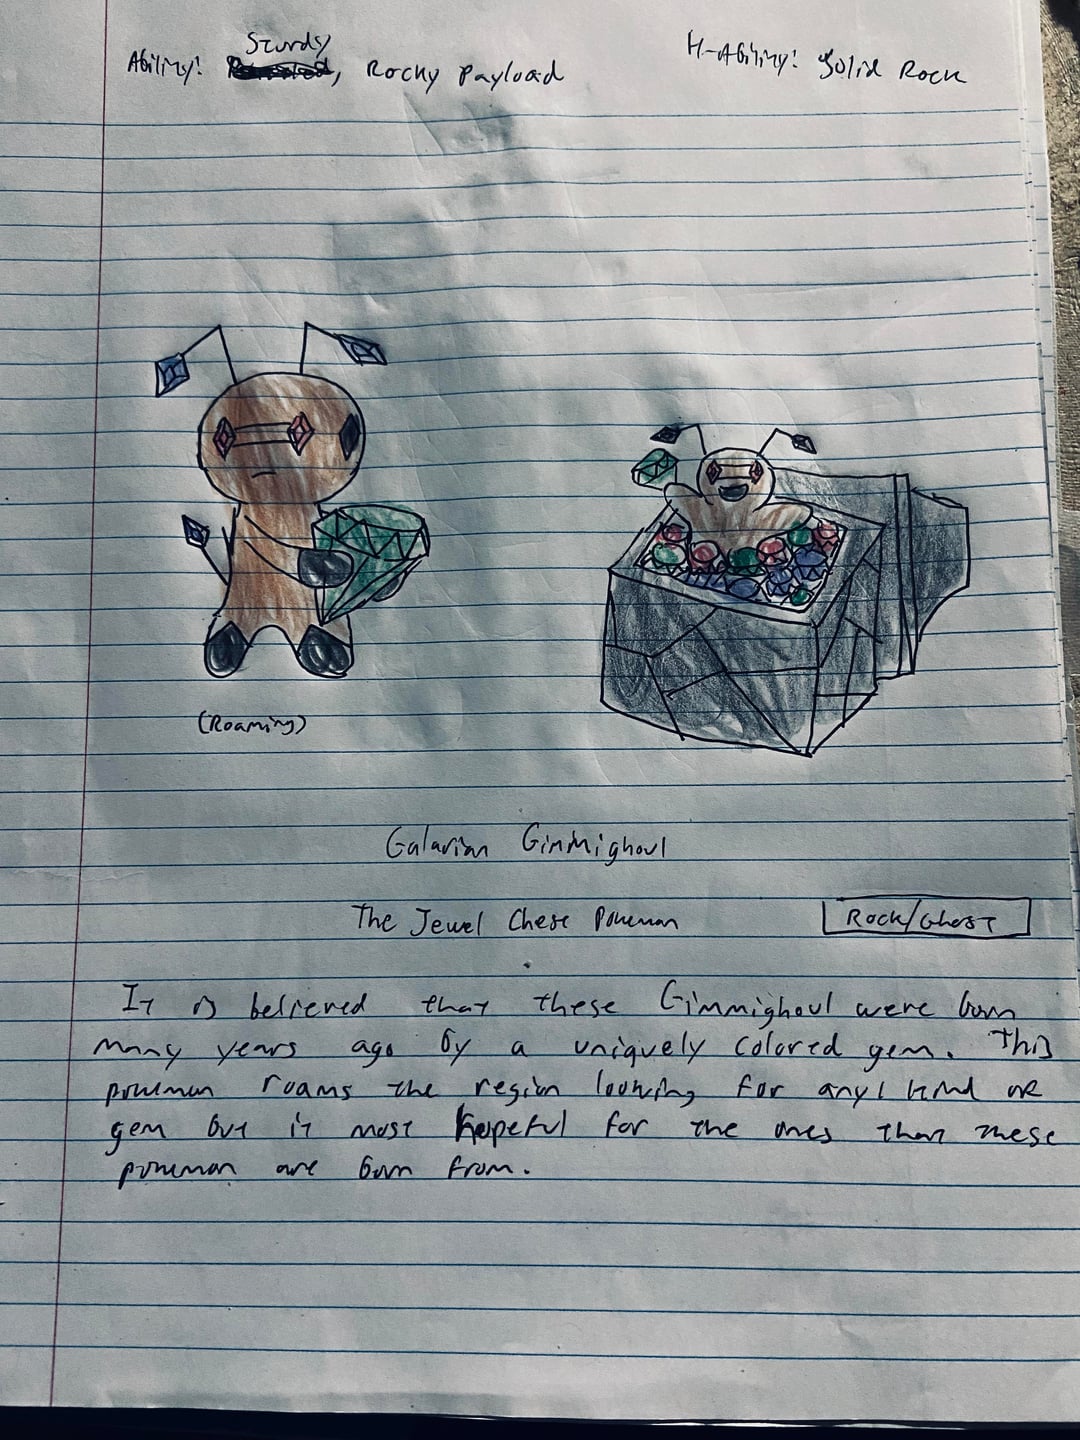 Sturdy
Ability: , Rocky Payload
H-Ability: Solid Rock
(Roaming)
Galarian Gimmighoul
The Jewel Chest Pokemon
Rock/Ghost
It is believed that these Gimmighoul were born
many years ago by a uniquely colored gem. This
pokemon roams the region looking for any kind of
gem but it most hopeful for the ones that these
pokemon are born from.